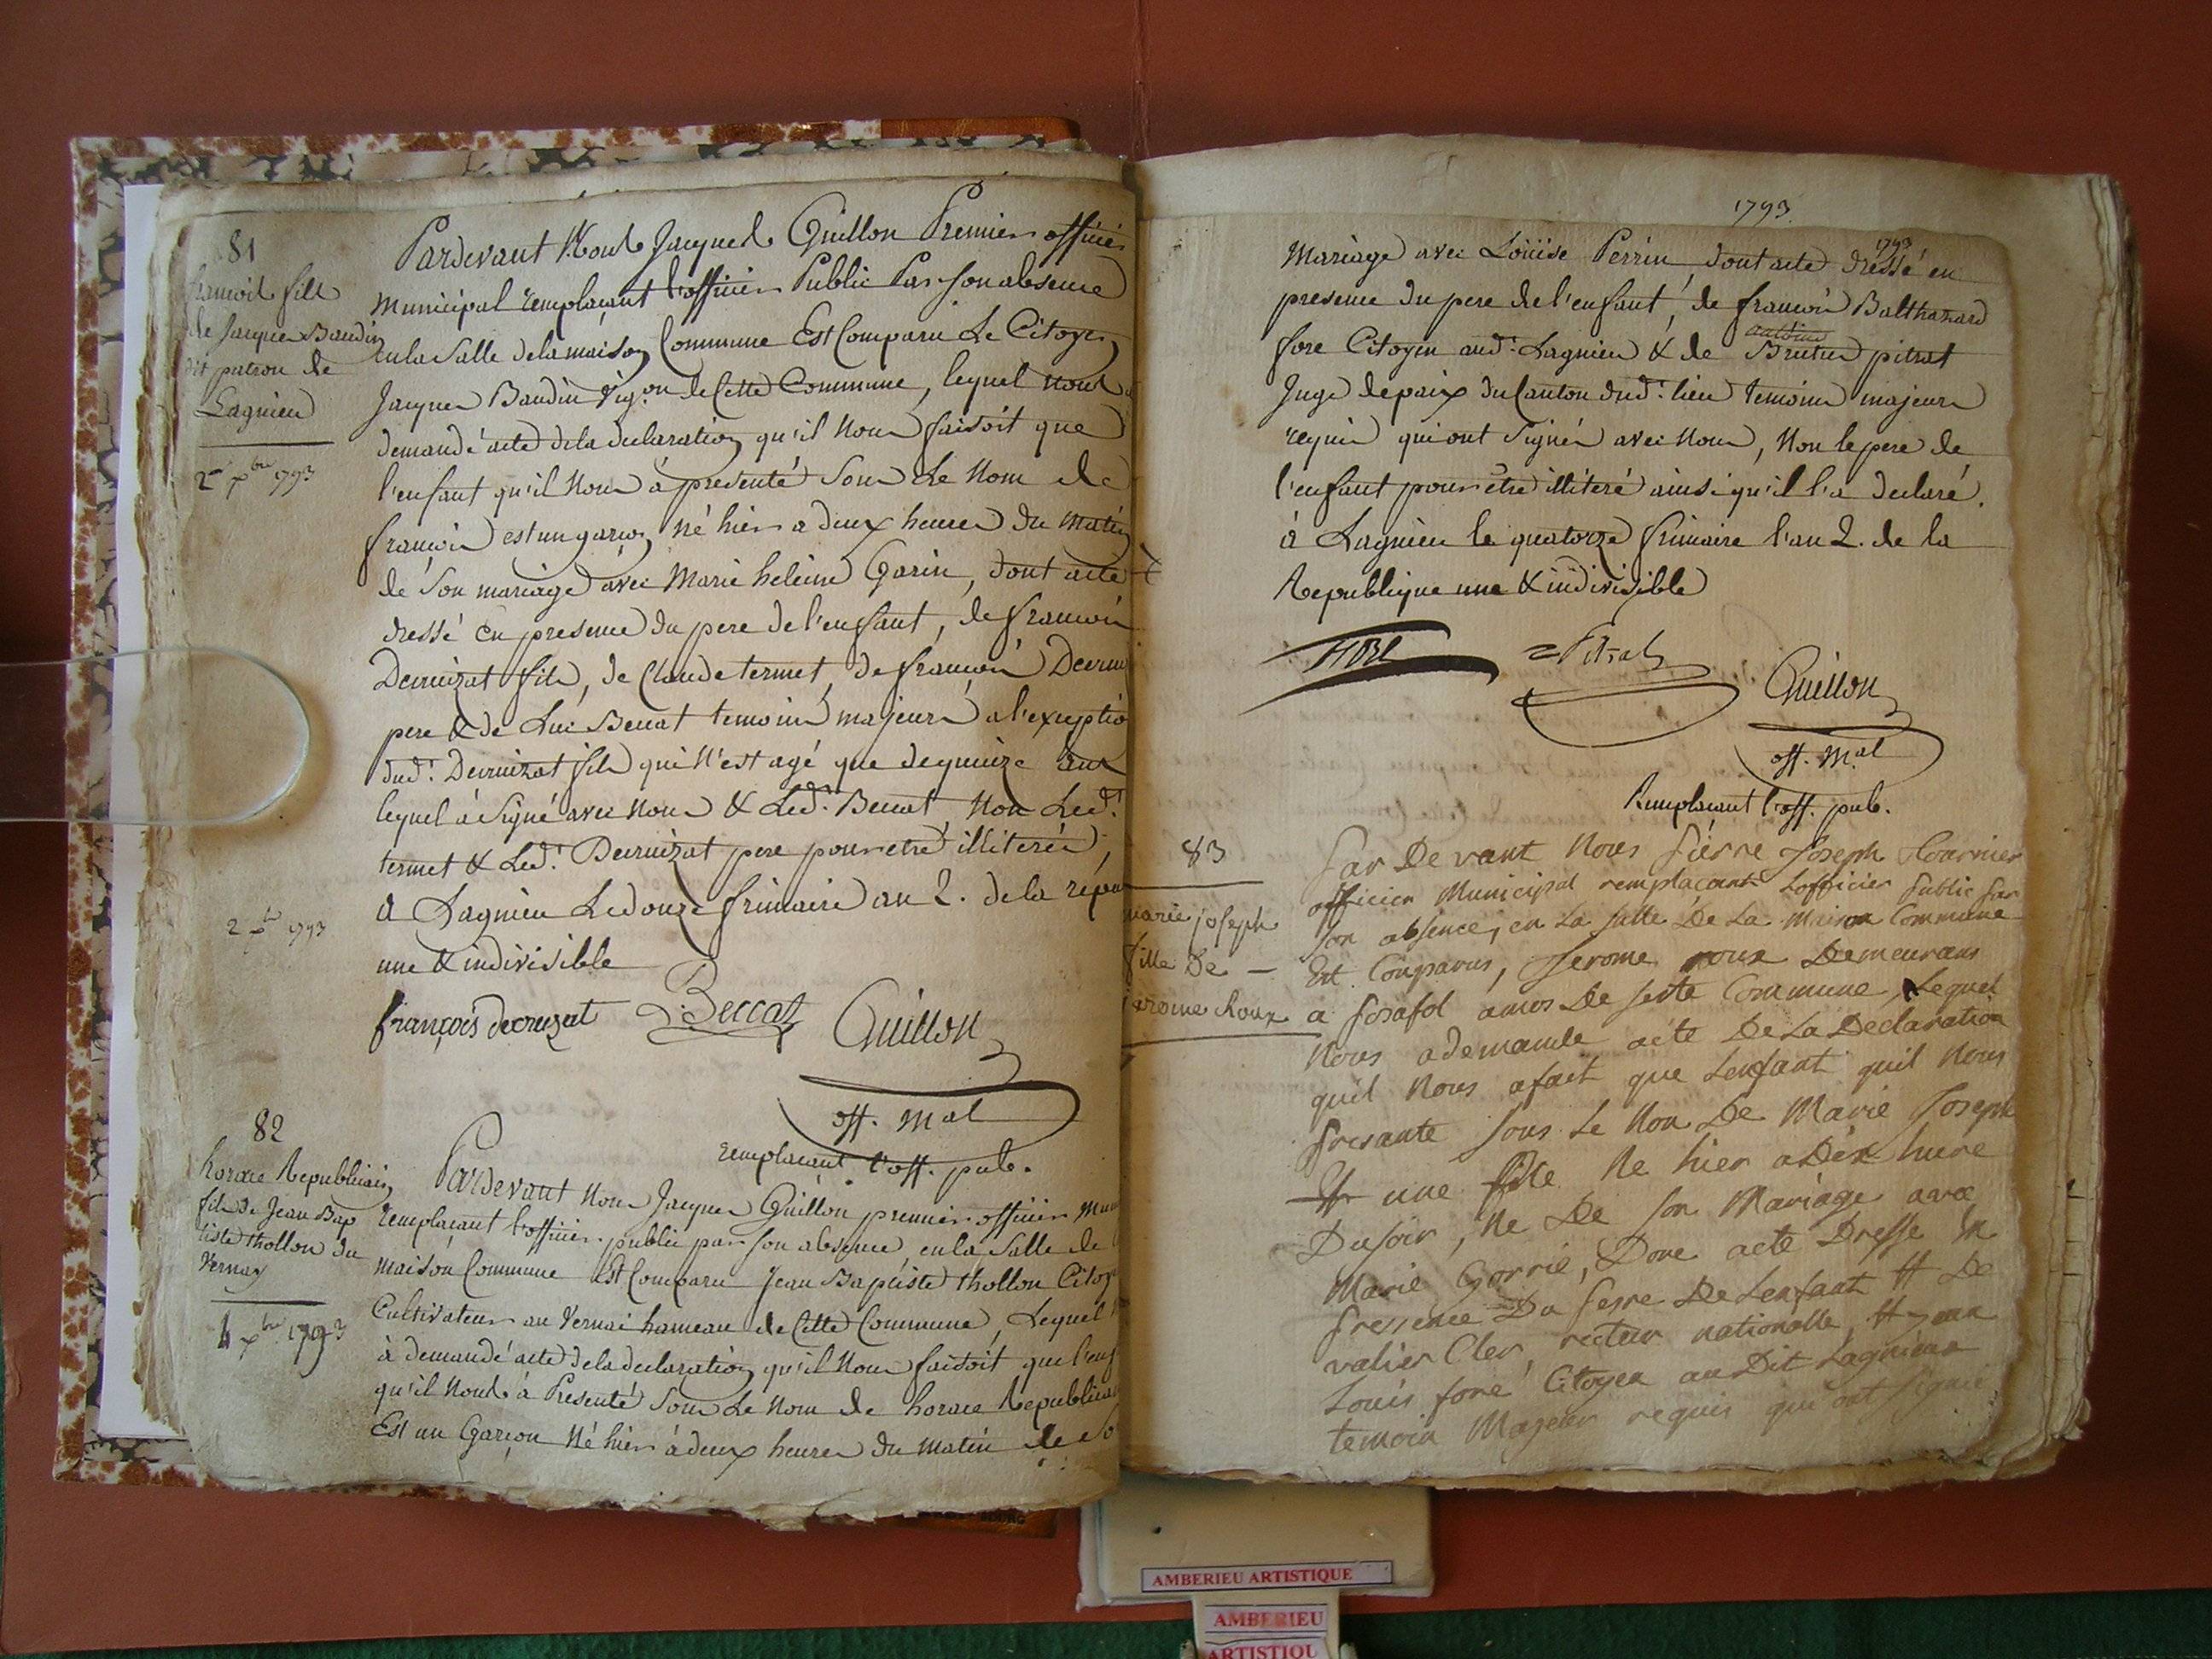 81
françois fils
de Jacques Baudin
dit patron de
Lagnieu
2 xbre 1793
Pardevant Nous Jacques Guillon Premier officier
Municipal remplaçant l'officier Public Par son absence
en la Salle de la maison Commune Est Comparu Le Citoyen
Jacques Baudin vig.on de Cette Commune, lequel nous a
demandé acte de la declaration qu'il Nous faisoit que
l'enfant qu'il Nous à presenté sous Le Nom de
françois est un garçon né hier a deux heures du matin
de Son mariage avec Marie heleine Garin, dont acte
dressé en presence du pere de l'enfant, de françois
Decruizat fils, de Claude termet, de françois Decrui
pere & de Luc Beccat temoins majeurs a l'exceptio
dud.t Decruizat fils qui N'est agé que de quinze ans
lequel a signé avec Nous & Led.t Beccat, Non Led.t
termet & Led.t Decruizat pere pour etre illiterés,
A Lagnieu Le douze frimaire an 2. de la répu
une & indivisible
2 xbre 1793
françois decruzat Beccat Guillon
off. Mal
remplaçant l'off. pub.
82
horace Republicain
fils de Jean Bap
tiste thollon du
Vernay
4 xbre 1793
Pardevant Nous Jacques Guillon premier officier Mun
remplaçant l'officier public par son absence en la Salle de
maison Commune Est Comparu Jean Baptiste thollon Citoy
Cultivateur au Vernai hameau de Cette Commune, Lequel
à demandé acte de la declaration qu'il Nous faisoit que l'enf
qu'il Nous à Presenté Sous Le Nom de horace Republicain
Est un Garçon Né hier à deux heures du Matin de so
1793
1793
Mariage avec Loüise Perrin, dont acte dressé en
presence du pere de l'enfant, de françois Balthazard
fore Citoyen aud.t Lagnieu & de Brutus pitrat
Juge de paix du Canton dud.t lieu temoins majeurs
requis qui ont signés avec Nous, Non le pere de
l'enfant pour être illiteré ainsi qu'il l'a declaré.
à Lagnieu le quatorze frimaire l'an 2. de la
Republique une & indivisible
Pitrat
Guillon
off. Mal
Remplacant l'off. pub.
83
marie joseph
fille De
jerome Roux
Par Devant Nous Piérre Joseph Fournier
officier Municipal remplaçant Lofficier Public Par
son absence, en La Salle De La Maison Commune
Est Comparus, Jerome roux Demeurans
a Posafol amos De seste Commune, Lequel
Nous ademande acte De La Declaration
quil Nous afait que Lenfant quil Nous
Presante sous Le Non De Marie Joseph
Est une file Ne hier a Dix hure
Dusoir, Ne De son Mariage avec
Marie Gorrié, Donc acte Dresse En
Pressence Du Pere De Lenfant Et De
valier Cler, recteur nationalle, Et jean
Louis foré Citoyen au Dit Lagnieux
temoin Majeur requis qui ont signé
AMBERIEU ARTISTIQUE
AMBERIEU
ARTISTIQU